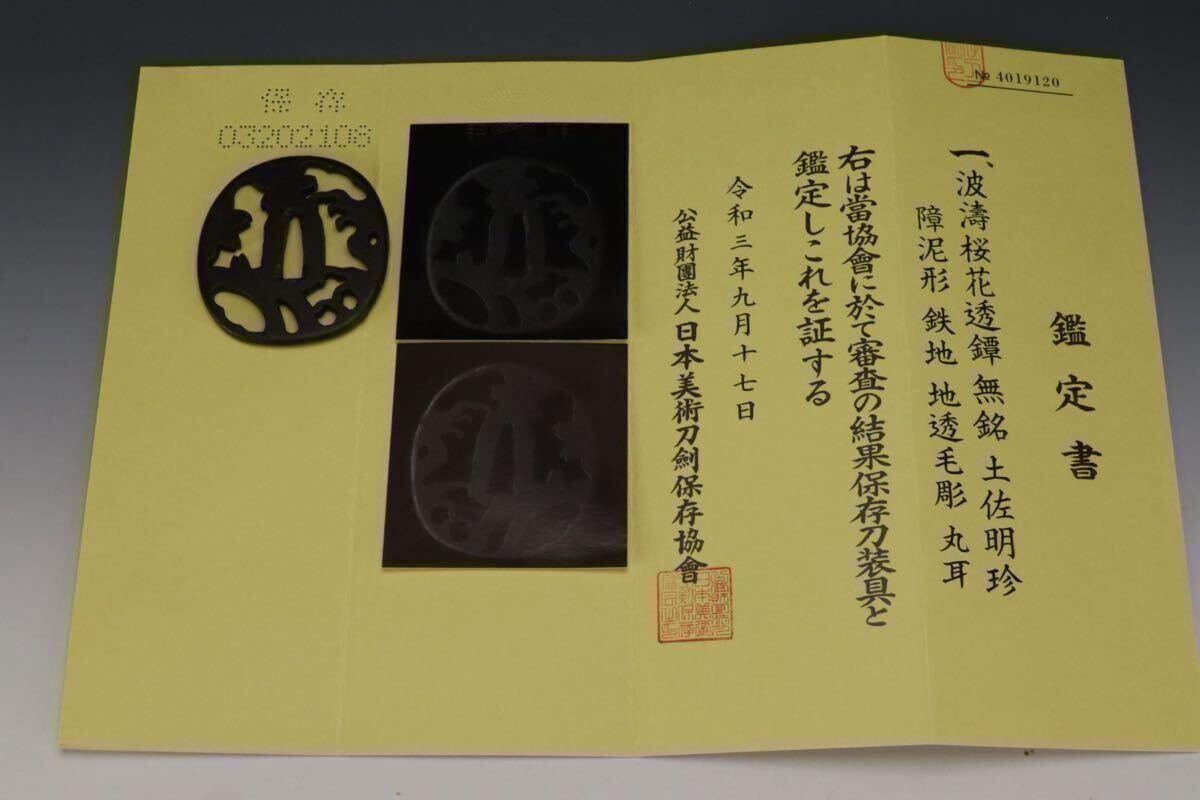 № 4019120
鑑定書
一、波濤桜花透鐔 無銘 土佐明珍
障泥形 鉄地 地透毛彫 丸耳
右は當協會に於て審査の結果保存刀装具と
鑑定しこれを証する
令和三年九月十七日
公益財團法人 日本美術刀劍保存協會
保存
03202108